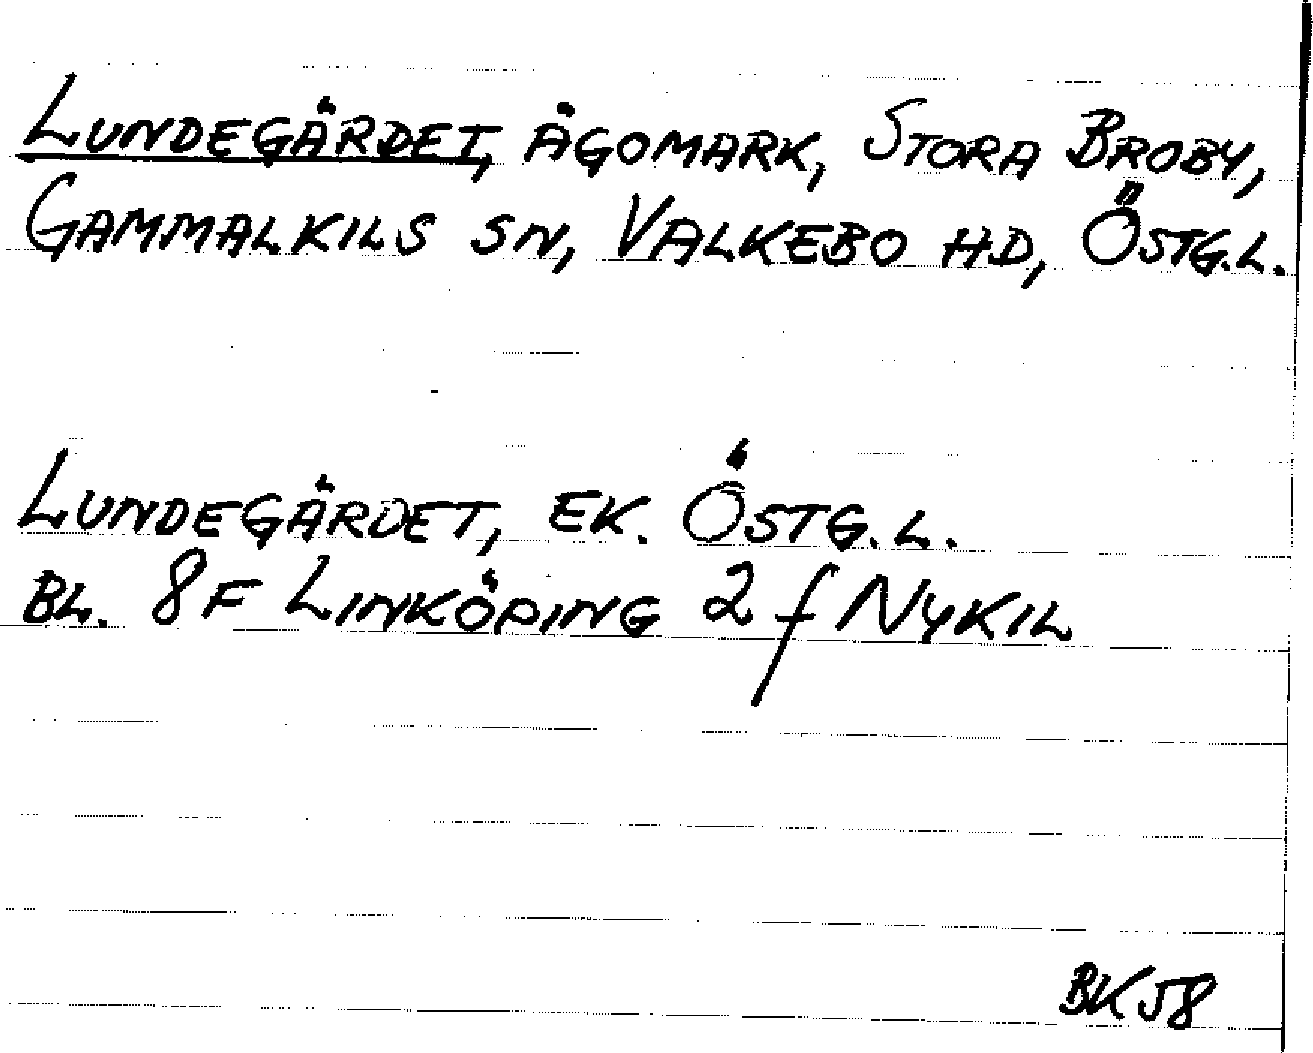 LUNDEGÄRDET, ÄGOMARK, STORA BROBY,
GAMMALKILS SN, VALKEBO HD, ÖSTG.L.
LUNDEGÄRDET, EK. ÖSTG.L.
BL. 8F LINKÖPING 2f NYKIL
BK 58